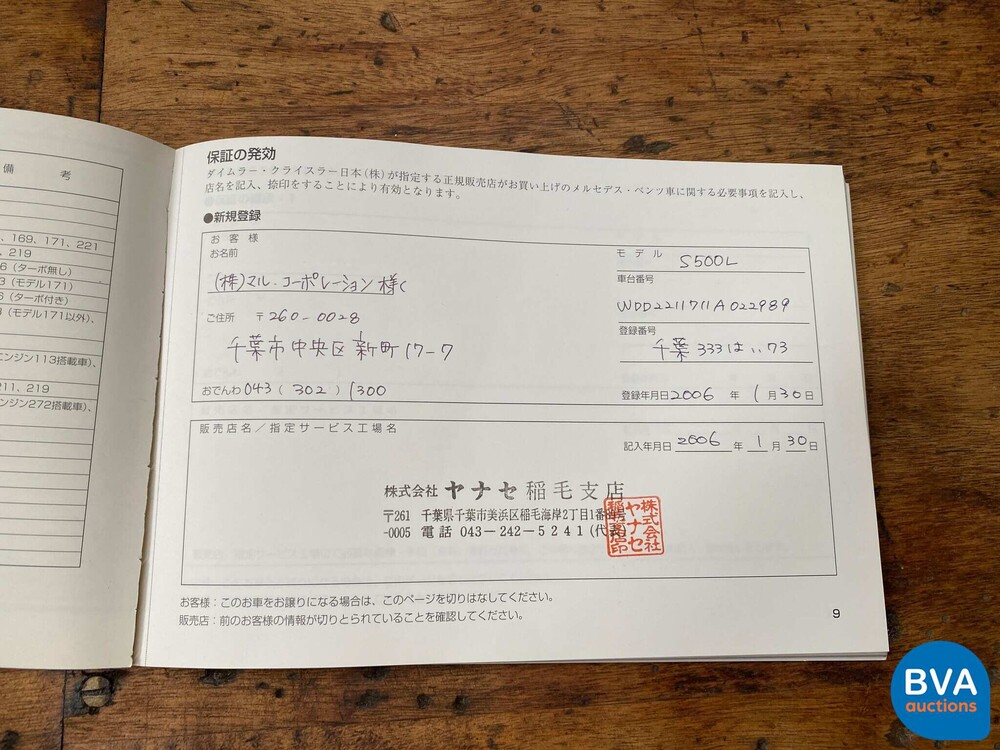 備 考
、169、171、221
、219
6（ターボ無し）
3（モデル171）
6（ターボ付き）
3（モデル171以外）、
エンジン113搭載車）、
211、219
エンジン272搭載車）、
保証の発効
ダイムラー・クライスラー日本（株）が指定する正規販売店がお買い上げのメルセデス・ベンツ車に関する必要事項を記入し、
店名を記入、捺印をすることにより有効となります。
●新規登録
お客様
お名前
(株)マル.コーポレーション 様
ご住所 〒260-0028
千葉市中央区新町17-7
おでんわ 043 ( 302 ) 1300
モデル S500L
車台番号
WDD2211711A022989
登録番号
千葉 333 は ..73
登録年月日 2006 年 1 月 30 日
販売店名／指定サービス工場名
記入年月日 2006 年 1 月 30 日
株式会社 ヤナセ 稲毛支店
〒261 千葉県千葉市美浜区稲毛海岸2丁目1番
-0005 電話 043-242-5241(代表)
株式会社
ヤナセ
お客様：このお車をお譲りになる場合は、このページを切りはなしてください。
販売店：前のお客様の情報が切りとられていることを確認してください。
9
BVA
auctions